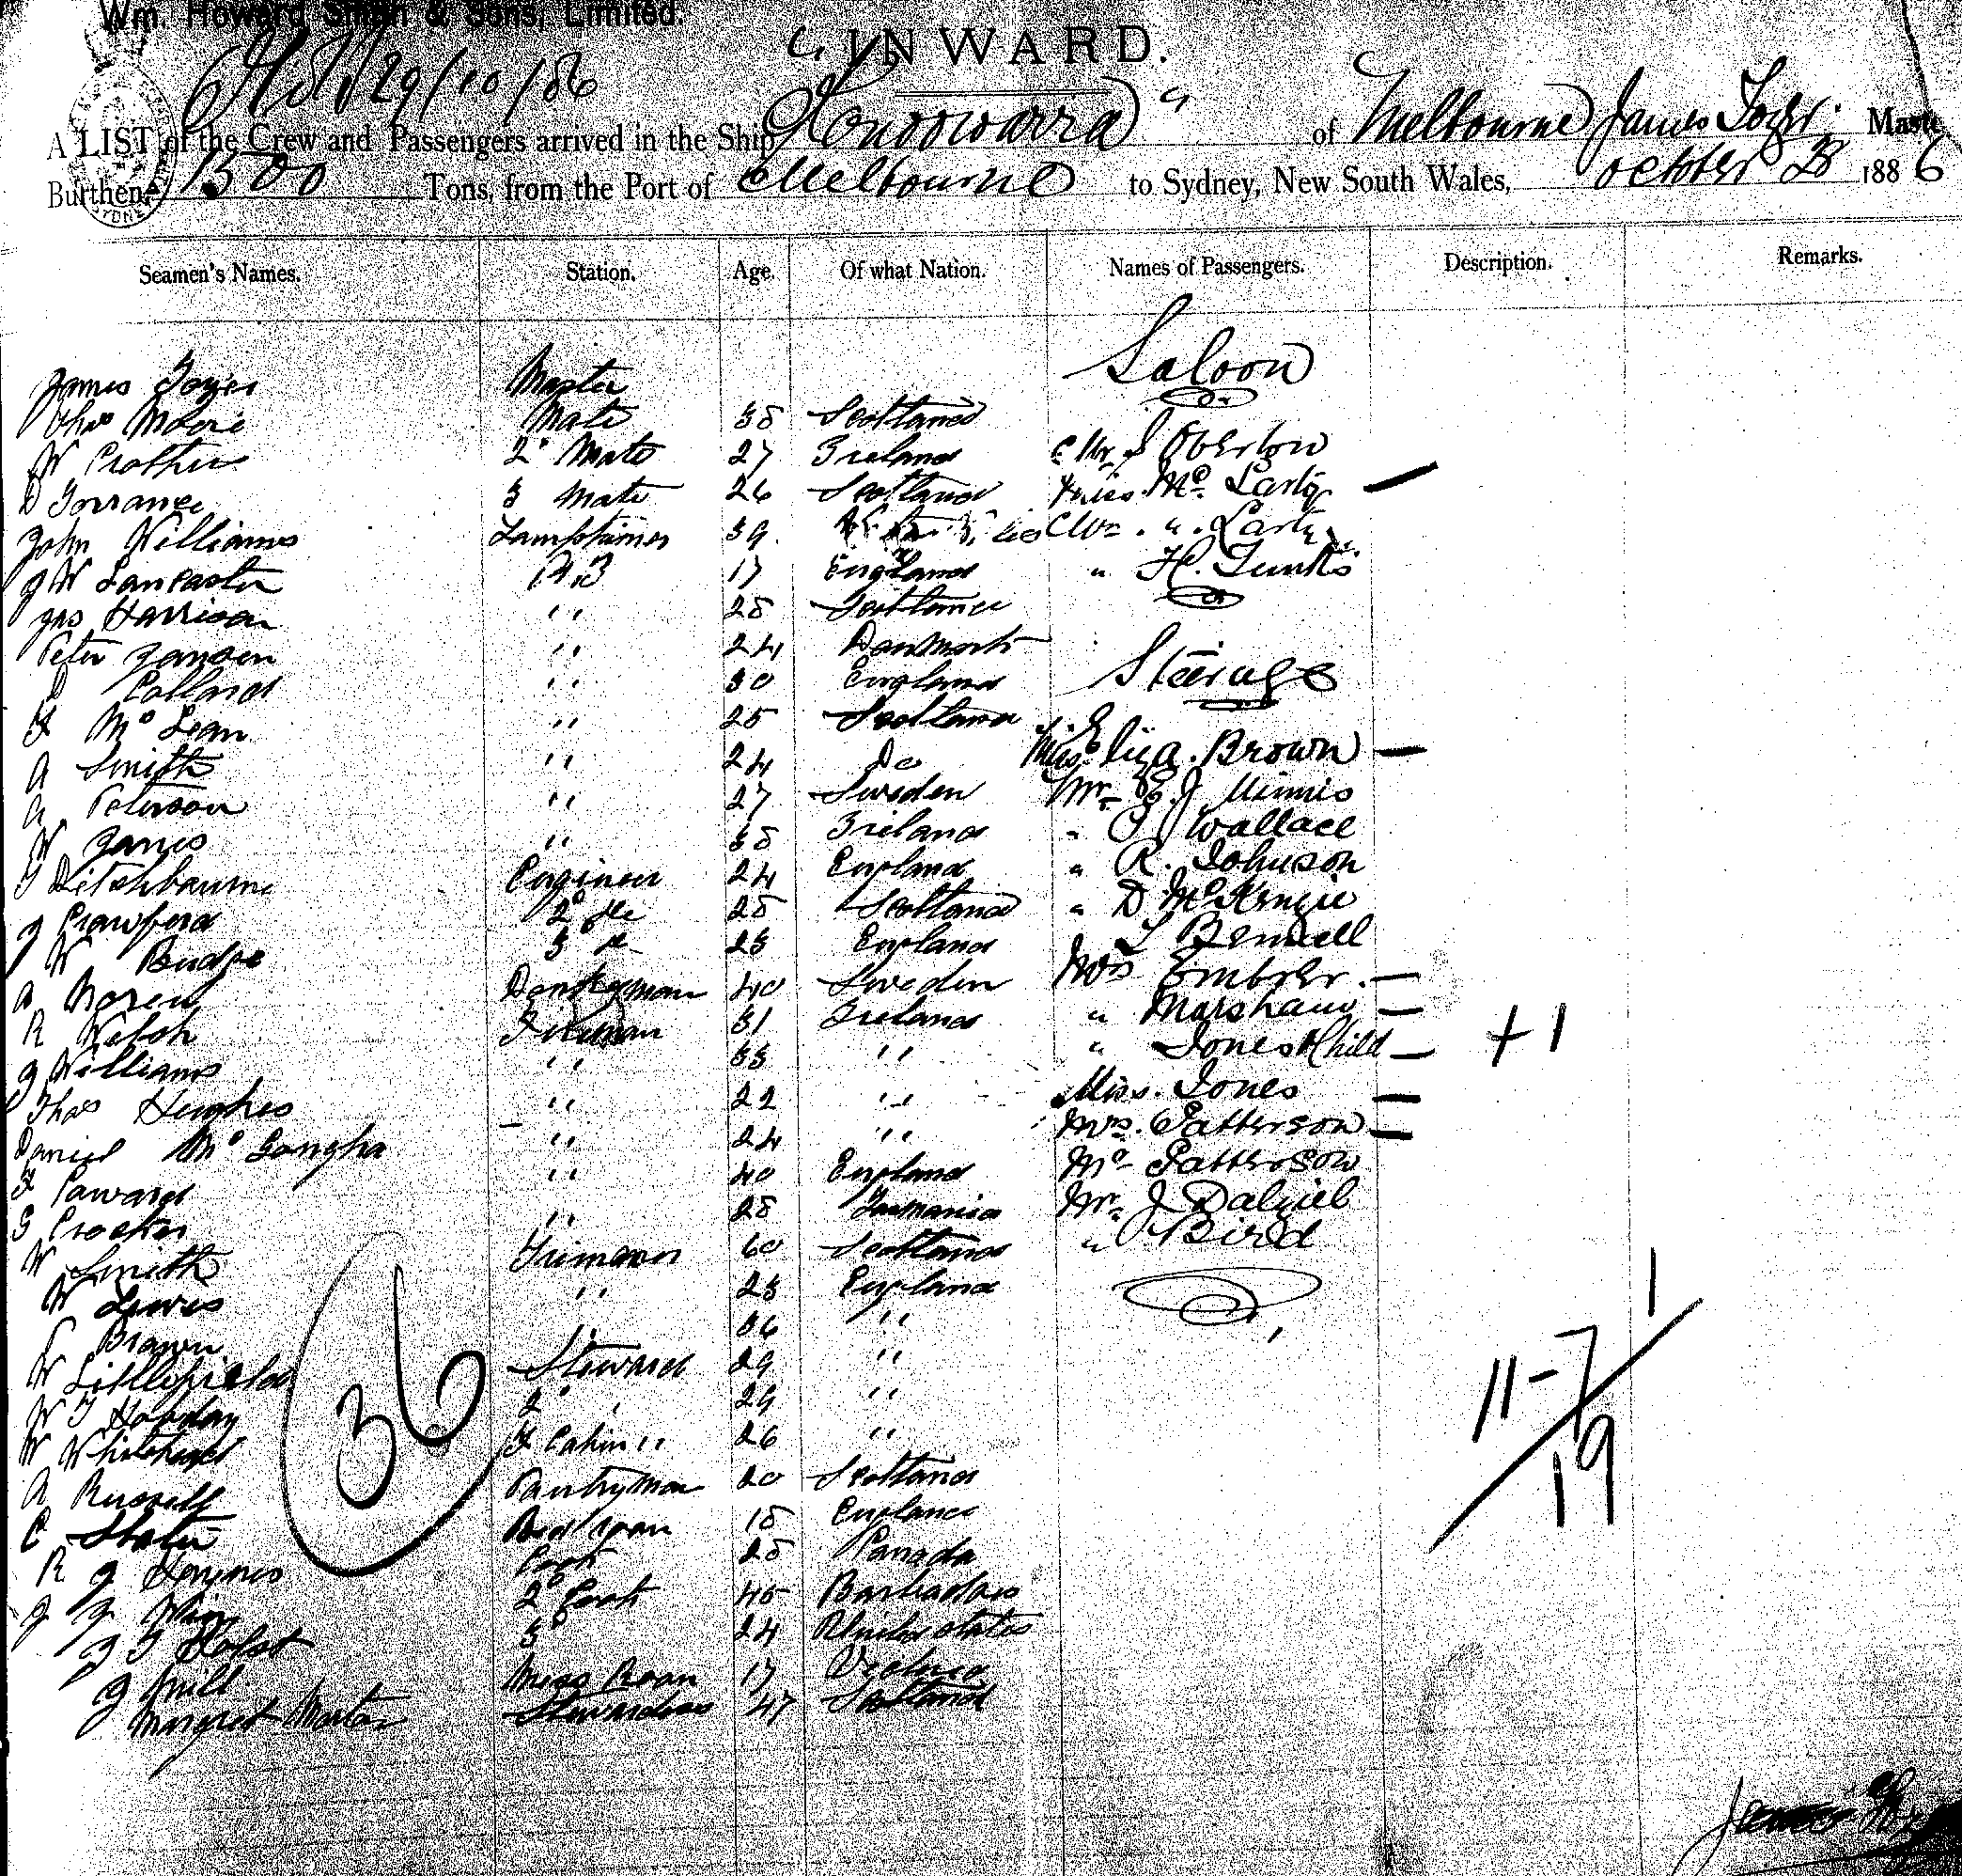 Wm. Howard Smith & Sons, Limited.
INWARD.
29/10/86
A LIST of the Crew and Passengers arrived in the Ship "Konoowarra" of Melbourne James Tozer Master
Burthen 1300 Tons, from the Port of Melbourne to Sydney, New South Wales, October 28 1886
Seamen's Names. Station. Age. Of what Nation. Names of Passengers. Description. Remarks.
Saloon
James Tozer Master
Thos Moore Mate 38 Scotland
W Prother 2 Mate 27 Ireland Mr J Overton
D Torrance 3 Mate 26 Scotland Miss Mc Larty
John Williams Lamptrimer 39 Larty
J W Lancaster A.B 17 England " H. Funks
Jas Harrison " 28 Scotland
Peter Jansen " 24 Denmark
Pollard " 30 England Steerage
Mc Lean " 25 Scotland
A Smith " 24 Do Miss Eliza Brown
A Peterson " 27 Sweden Mr E. J. Minnis
W James " 38 Ireland " Wallace
Ditchbourne Engineer 24 England " R. Johnson
J Crawford 2 do 28 Scotland " D McKenzie
W Budge 3 do 23 England Bennell
A Noren Donkeyman 40 Sweden Mrs Embrer
R Welsh Fireman 31 Ireland " Marshall
J Williams " 33 " " Jones & Child + 1
Thos Hughes " 22 " Miss Jones
Daniel Mc " 24 " Mrs. Patterson
" 40 England Mr Patterson
G Crocker " 28 Tasmania Mr J Dalziel
W Smith Trimmer 60 Scotland " Bird
W Lewis " 23 England
Brown " 36 "
W Littlefield Steward 29 "
W T 2 " 29 "
W Whitehead F Cabin " 26 "
A Russell Pantryman 20 Scotland
C Slater 18 England
R J Haynes Cook 28 Canada
2 Cook 45 Barbadoes
3 24 United States
J Mill Mess Room 17 Victoria
Margret Morton Stewardess 47 Scotland
36
1
11-7
19
James